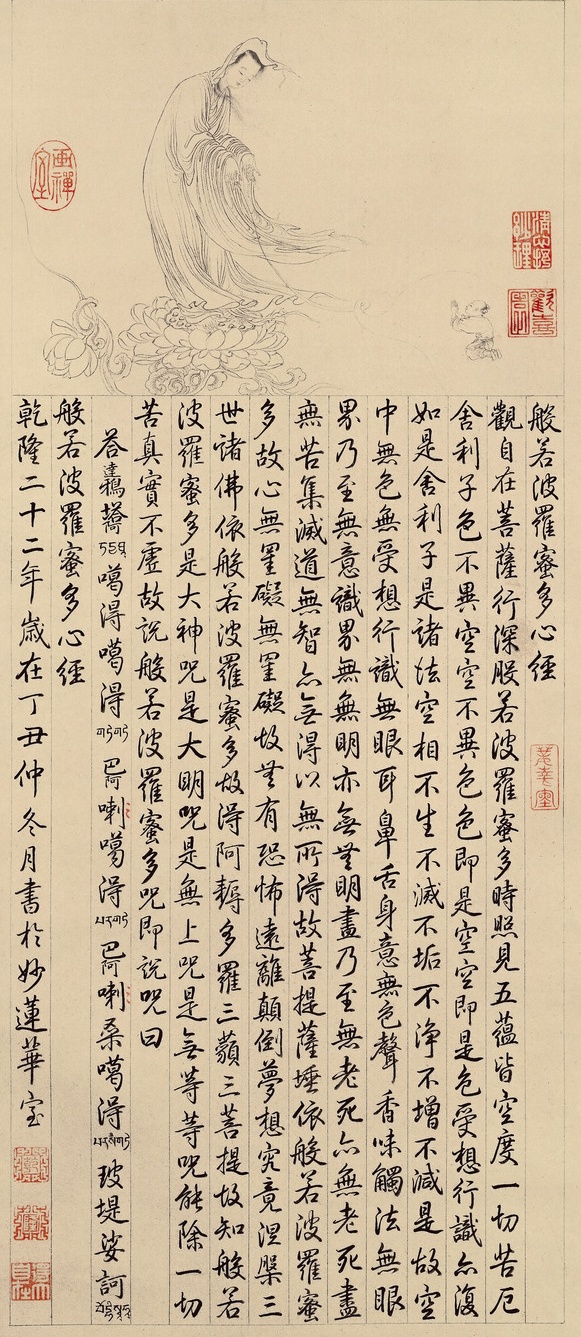 畫禪室
般若波羅蜜多心經
觀自在菩薩行深般若波羅蜜多時照見五蘊皆空度一切苦厄
舍利子色不異空空不異色色即是空空即是色受想行識亦復
如是舍利子是諸法空相不生不滅不垢不淨不增不減是故空
中無色無受想行識無眼耳鼻舌身意無色聲香味觸法無眼
界乃至無意識界無無明亦無無明盡乃至無老死亦無老死盡
無苦集滅道無智亦無得以無所得故菩提薩埵依般若波羅蜜
多故心無罣礙無罣礙故無有恐怖遠離顛倒夢想究竟涅槃三
世諸佛依般若波羅蜜多故得阿耨多羅三藐三菩提故知般若
波羅蜜多是大神咒是大明咒是無上咒是無等等咒能除一切
苦真實不虛故說般若波羅蜜多咒即說咒曰
噶得噶得 巴阿喇噶得 巴阿喇桑噶得 玻堤娑訶
般若波羅蜜多心經
乾隆二十二年歲在丁丑仲冬月書於妙蓮華室